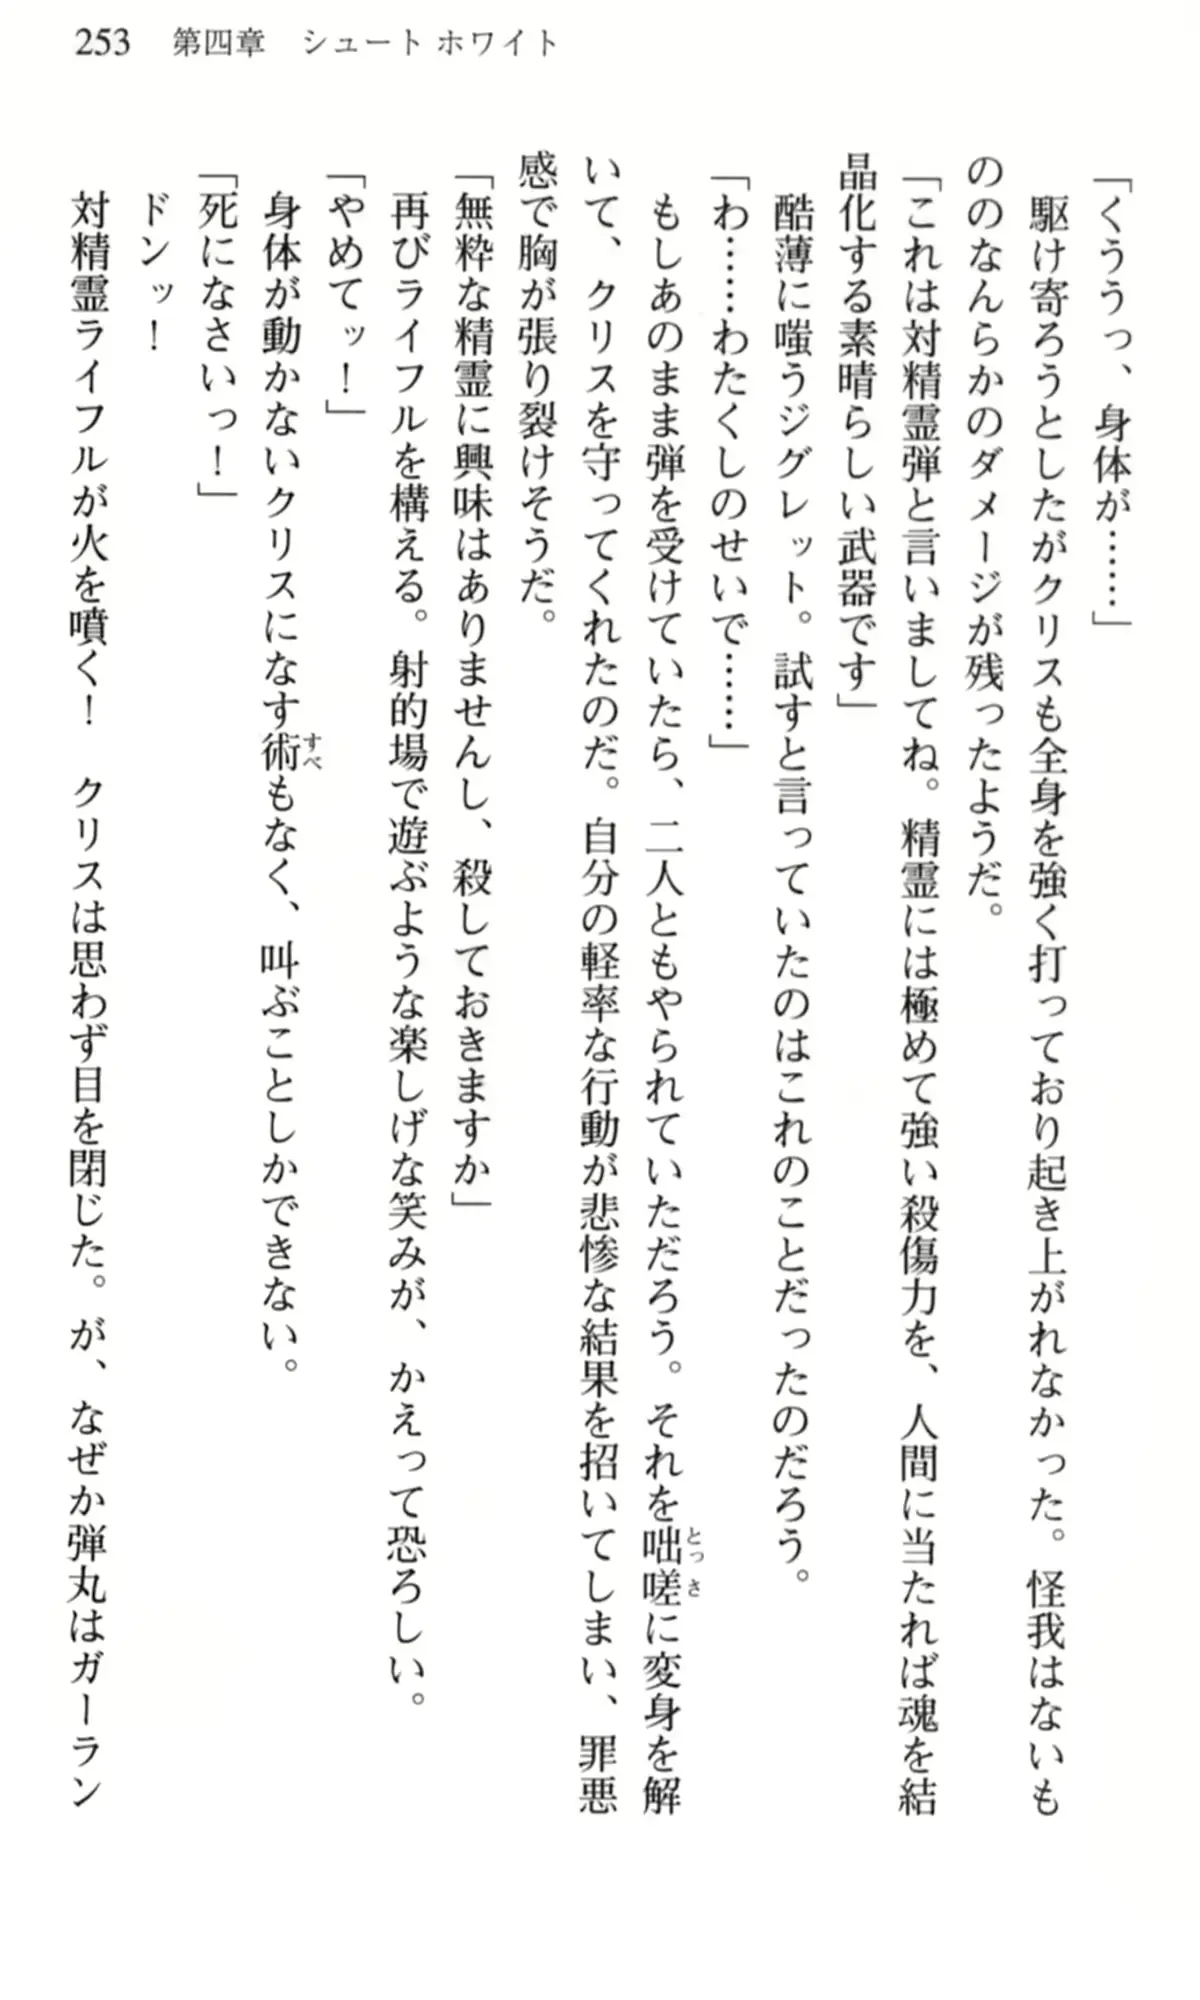 253　第四章　シュート ホワイト
「くううっ、身体が……」
　駆け寄ろうとしたがクリスも全身を強く打っており起き上がれなかった。怪我はないも
ののなんらかのダメージが残ったようだ。
「これは対精霊弾と言いましてね。精霊には極めて強い殺傷力を、人間に当たれば魂を結
晶化する素晴らしい武器です」
　酷薄に嗤うジグレット。試すと言っていたのはこれのことだったのだろう。
「わ……わたくしのせいで……」
　もしあのまま弾を受けていたら、二人ともやられていただろう。それを咄嗟に変身を解
いて、クリスを守ってくれたのだ。自分の軽率な行動が悲惨な結果を招いてしまい、罪悪
感で胸が張り裂けそうだ。
「無粋な精霊に興味はありませんし、殺しておきますか」
　再びライフルを構える。射的場で遊ぶような楽しげな笑みが、かえって恐ろしい。
「やめてッ！」
　身体が動かないクリスになす術もなく、叫ぶことしかできない。
「死になさいっ！」
　ドンッ！
　対精霊ライフルが火を噴く！　クリスは思わず目を閉じた。が、なぜか弾丸はガーラン